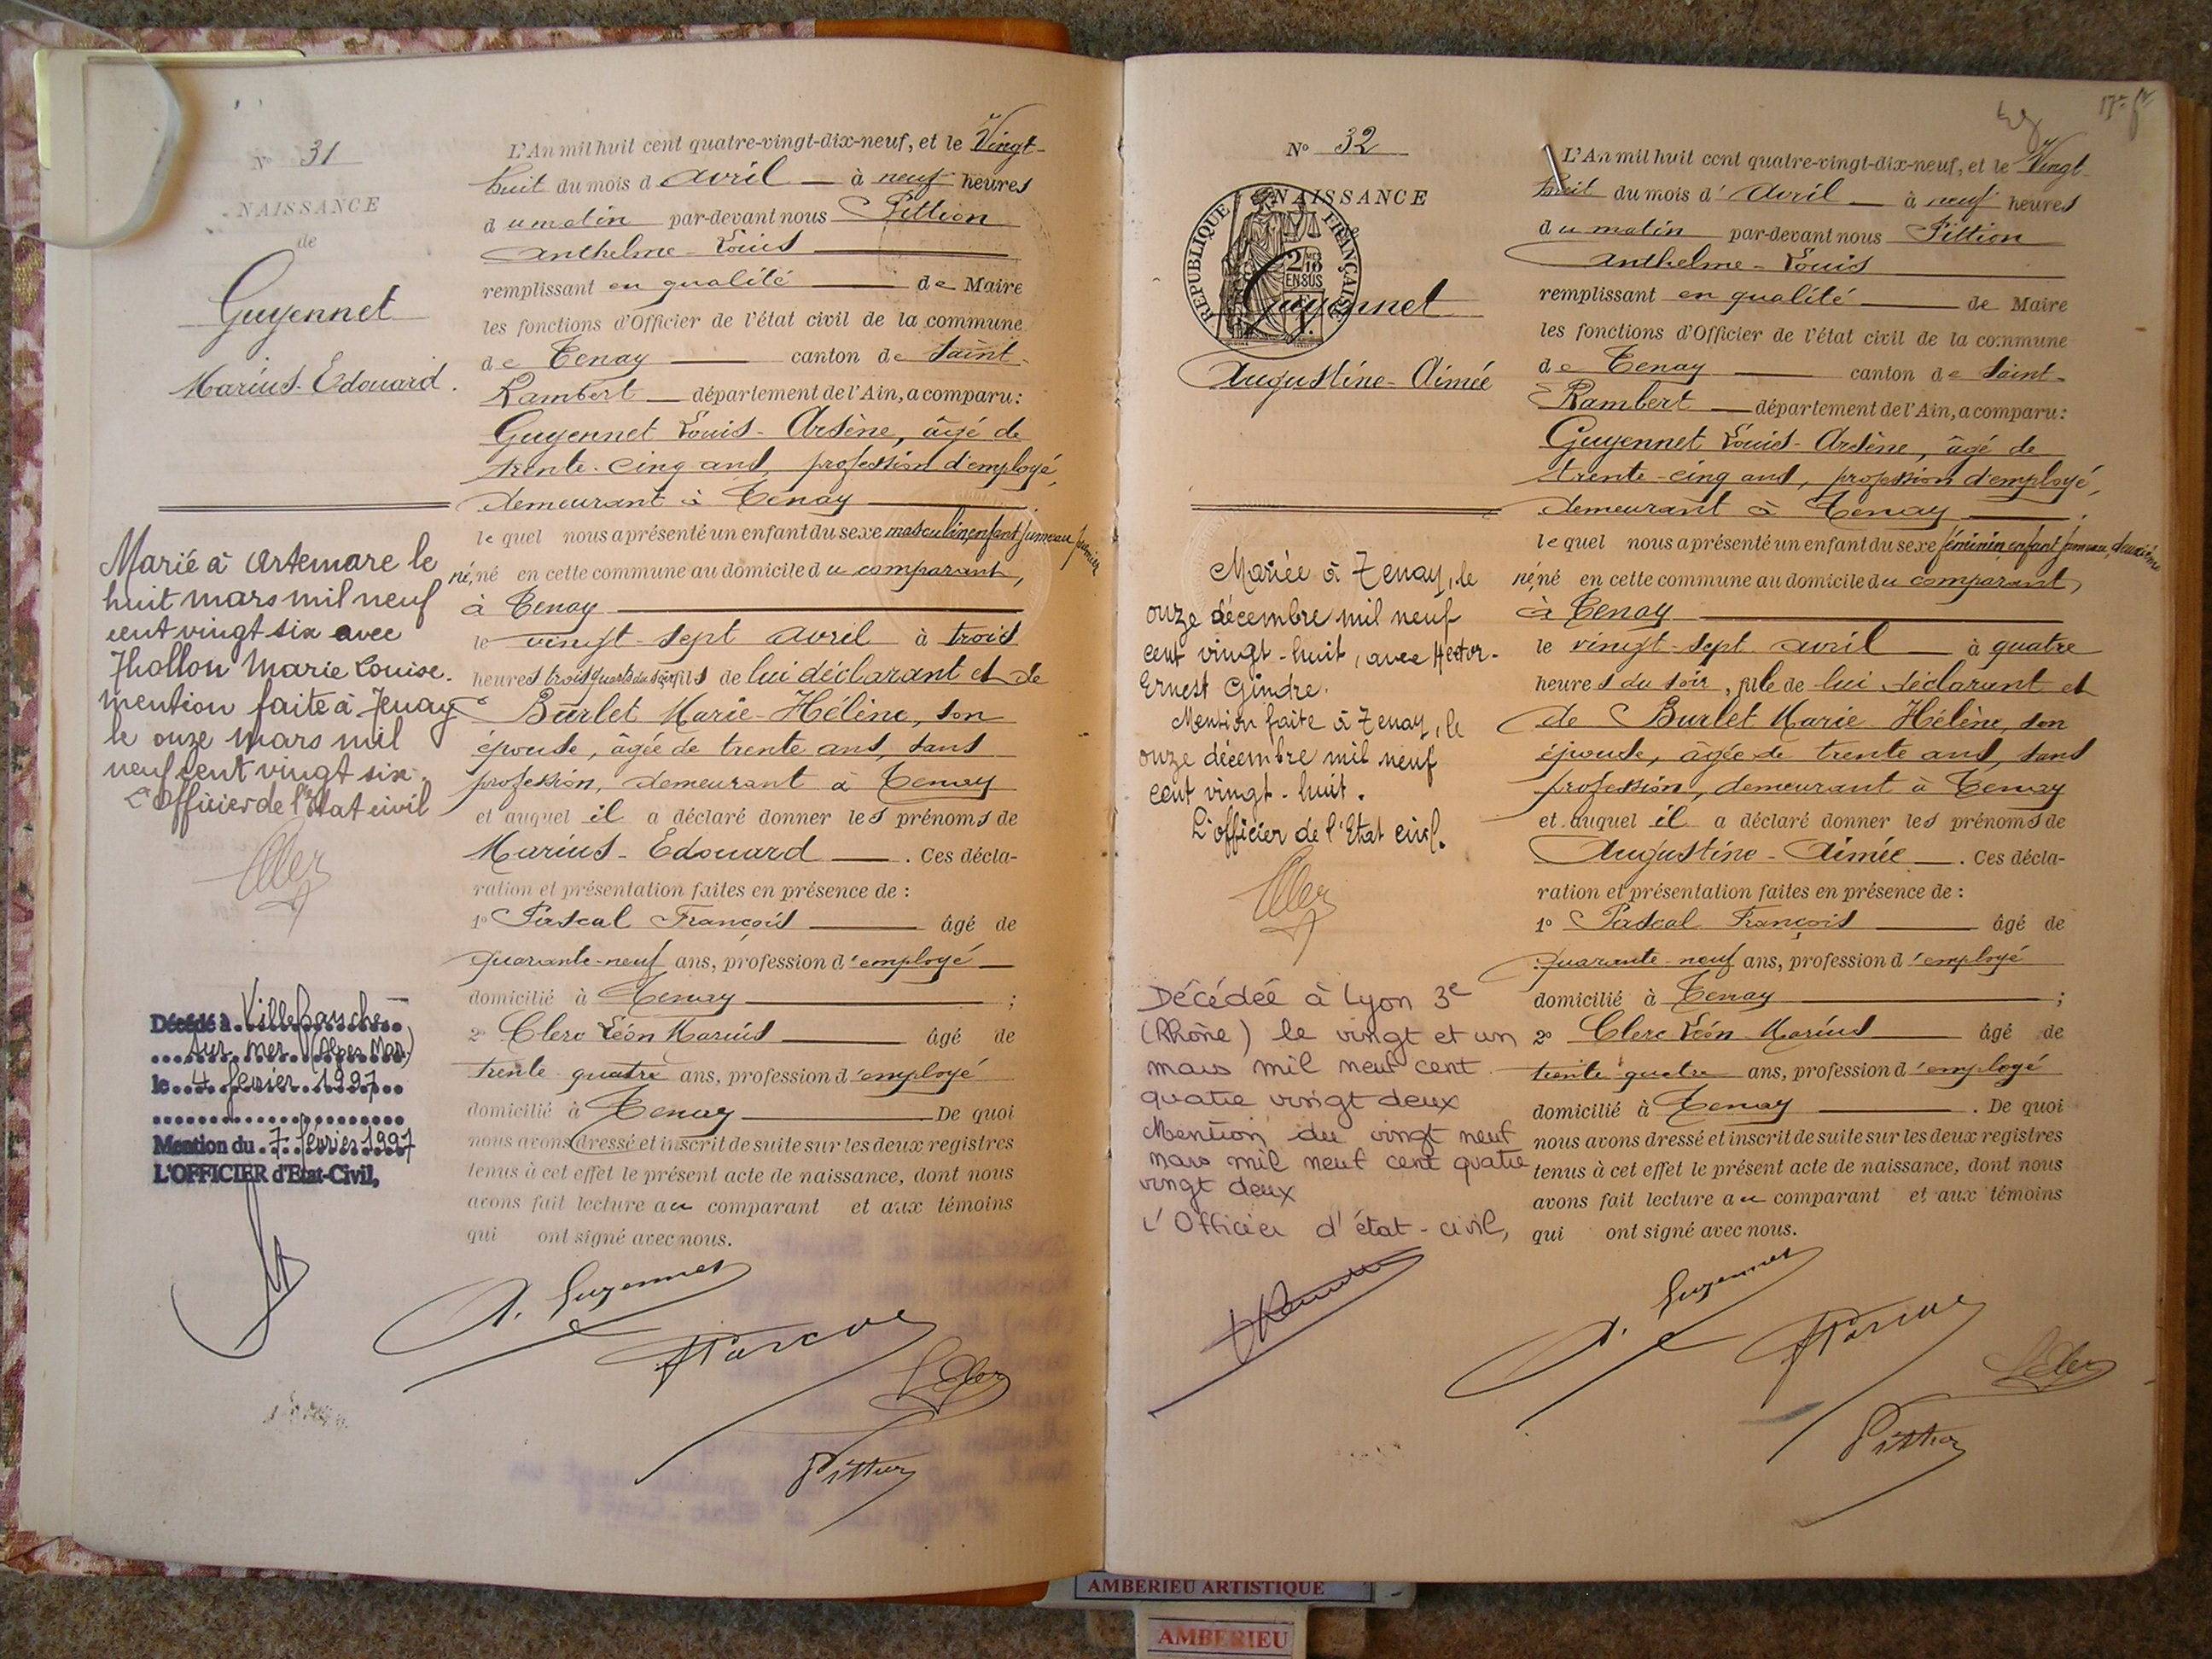 N° 31
NAISSANCE
de
Guyennet
Marius-Edouard.
Marié à Artemare le
huit mars mil neuf
cent vingt six avec
Thollon Marie Louise.
mention faite à Tenay
le onze mars mil
neuf cent vingt six.
L'Officier de l'Etat civil
Décédé à Villefranche
sur mer (Alpes Mar.)
le 4 fevrier 1997
Mention du 7 fevrier 1997
L'OFFICIER d'Etat-Civil,
L'An mil huit cent quatre-vingt-dix-neuf, et le Vingt-
huit du mois d avril — à neuf heures
du matin par-devant nous Pittion
Anthelme-Louis
remplissant en qualité — de Maire
les fonctions d'Officier de l'état civil de la commune
de Tenay — canton de Saint-
Rambert — département de l'Ain, a comparu:
Guyennet Louis-Arsène, âgé de
trente-cinq ans, profession d'employé,
demeurant à Tenay
lequel nous a présenté un enfant du sexe masculin, enfant jumeau premier
né, né en cette commune au domicile du comparant,
à Tenay
le vingt-sept avril à trois
heures trois quarts du soir fils de lui déclarant et de
Burlet Marie-Hélène, son
épouse, âgée de trente ans, sans
profession, demeurant à Tenay
et auquel il a déclaré donner les prénoms de
Marius-Edouard — . Ces décla-
ration et présentation faites en présence de :
1° Pascal François — âgé de
quarante-neuf ans, profession d'employé
domicilié à Tenay ;
2° Clerc Léon Marius — âgé de
trente quatre ans, profession d'employé
domicilié à Tenay — De quoi
nous avons dressé et inscrit de suite sur les deux registres
tenus à cet effet le présent acte de naissance, dont nous
avons fait lecture au comparant et aux témoins
qui ont signé avec nous.
A. Guyennet
F Pascal
L Clerc
Pittion
N° 32
NAISSANCE
REPUBLIQUE FRANÇAISE
2/10
EN SUS
Guyennet
Augustine-Aimée
Mariée à Tenay, le
onze décembre mil neuf
cent vingt-huit, avec Hector-
Ernest Gindre.
Mention faite à Tenay, le
onze décembre mil neuf
cent vingt-huit.
L'officier de l'Etat civil.
Décédée à Lyon 3e
(Rhône) le vingt et un
mars mil neuf cent
quatre vingt deux
Mention du vingt neuf
mars mil neuf cent quatre
vingt deux
L'Officier d'état-civil,
L'An mil huit cent quatre-vingt-dix-neuf, et le Vingt
huit du mois d' avril — à neuf heures
du matin par-devant nous Pittion
Anthelme-Louis
remplissant en qualité — de Maire
les fonctions d'Officier de l'état civil de la commune
de Tenay — canton de Saint-
Rambert — département de l'Ain, a comparu:
Guyennet Louis-Arsène, âgé de
trente-cinq ans, profession d'employé,
demeurant à Tenay
lequel nous a présenté un enfant du sexe féminin, enfant jumeau, deuxième
né, né en cette commune au domicile du comparant,
à Tenay
le vingt-sept avril — à quatre
heures du soir, fille de lui déclarant et
de Burlet Marie Hélène, son
épouse, âgée de trente ans, sans
profession, demeurant à Tenay
et auquel il a déclaré donner les prénoms de
Augustine-Aimée — . Ces décla-
ration et présentation faites en présence de :
1° Pascal François — âgé de
quarante-neuf ans, profession d'employé
domicilié à Tenay ;
2° Clerc Léon Marius — âgé de
trente quatre ans, profession d'employé
domicilié à Tenay — . De quoi
nous avons dressé et inscrit de suite sur les deux registres
tenus à cet effet le présent acte de naissance, dont nous
avons fait lecture au comparant et aux témoins
qui ont signé avec nous.
A. Guyennet
F Pascal
L Clerc
Pittion
AMBERIEU ARTISTIQUE
AMBERIEU